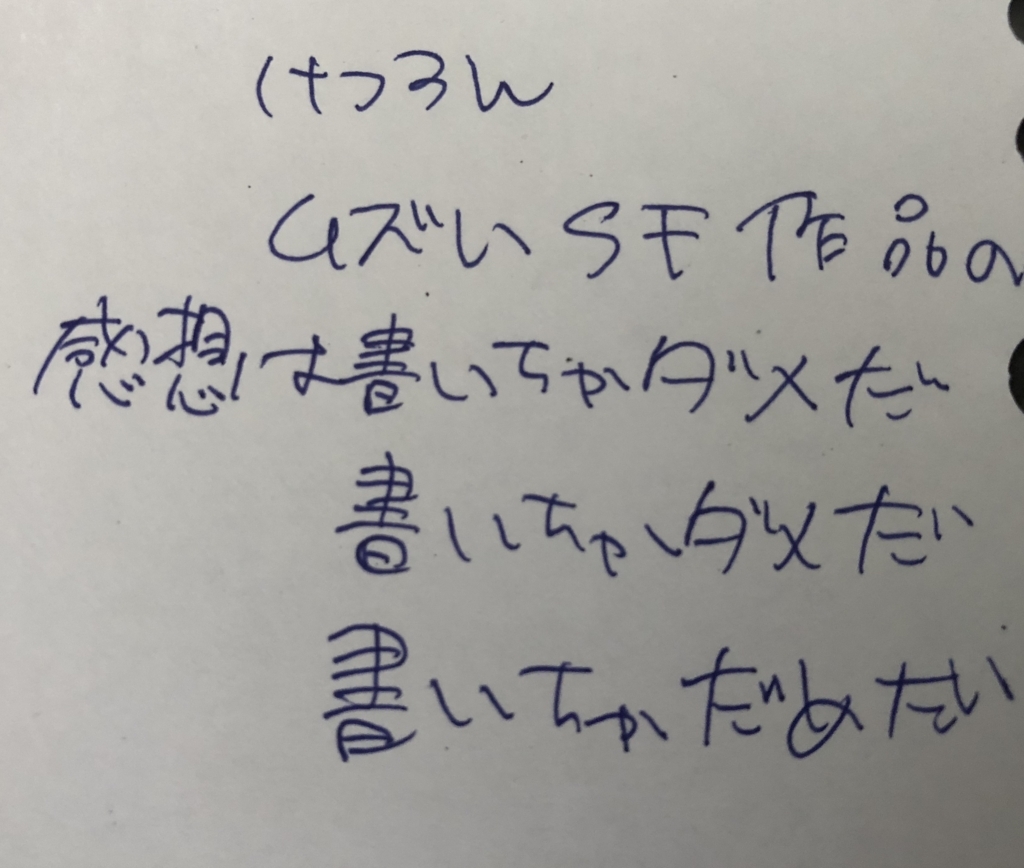 けつろん
ムズいSF作品の
感想は書いちゃダメだ
書いちゃダメだ
書いちゃだめだ